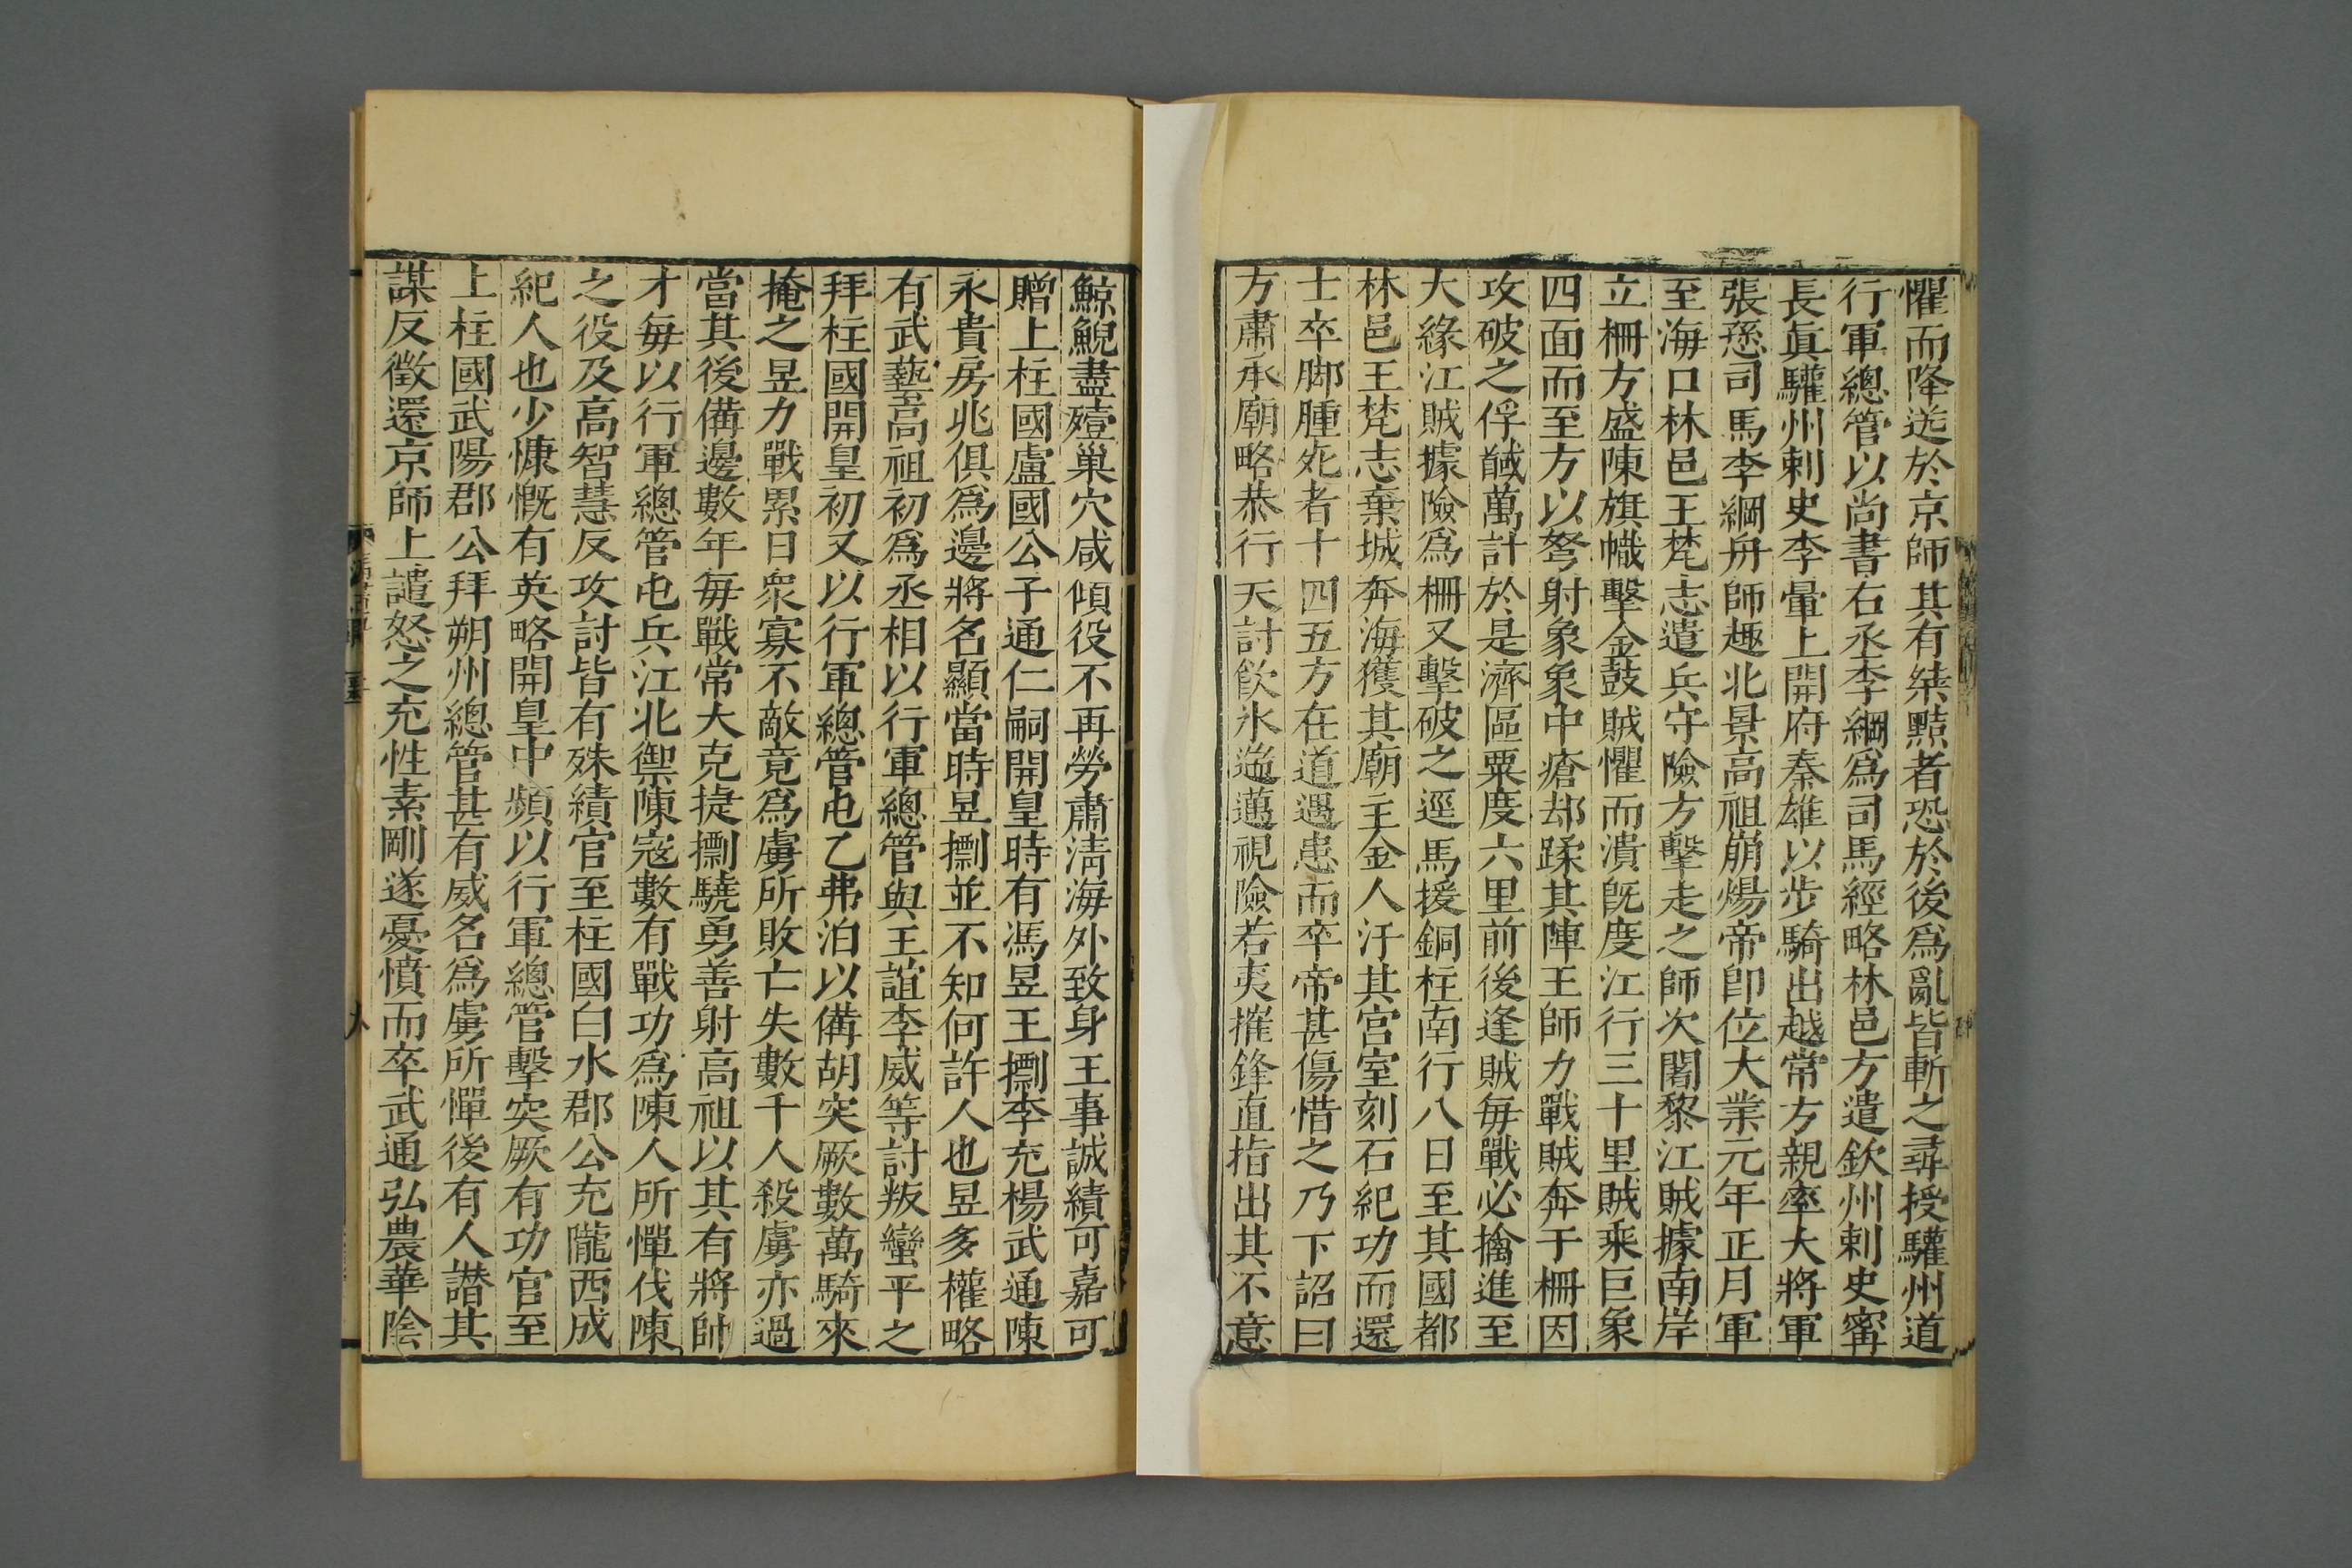 懼而降送於京師其有桀黠者恐於後爲亂皆斬之尋授驩州道
行軍總管以尚書右丞李綱爲司馬經略林邑方遣欽州刺史甯
長眞驩州刺史李暈上開府秦雄以步騎出越常方親率大將軍
張愻司馬李綱舟師趣北景高祖崩煬帝卽位大業元年正月軍
至海口林邑王梵志遣兵守險方擊走之師次闍黎江賊據南岸
立柵方盛陳旗幟擊金鼓賊懼而潰旣度江行三十里賊乘巨象
四面而至方以弩射象象中瘡却蹂其陣王師力戰賊奔于柵因
攻破之俘馘萬計於是濟區粟度六里前後逢賊每戰必擒進至
大緣江賊據險爲柵又擊破之逕馬援銅柱南行八日至其國都
林邑王梵志棄城奔海獲其廟主金人汙其宮室刻石紀功而還
士卒脚腫死者十四五方在道遇患而卒帝甚傷惜之乃下詔曰
方肅承廟略恭行天討飮氷邁視險若夷摧鋒直指出其不意
鯨鯢盡殪巢穴咸傾役不再勞肅淸海外致身王事誠績可嘉可
贈上柱國盧國公子通仁嗣開皇時有馮昱王㯿李充楊武通陳
永貴房兆俱爲邊將名顯當時昱㯿並不知何許人也昱多權略
有武藝高祖初爲丞相以行軍總管與王誼李威等討叛蠻平之
拜柱國開皇初又以行軍總管屯乙弗泊以備胡突厥數萬騎來
掩之昱力戰累日衆寡不敵竟爲虜所敗亡失數千人殺虜亦過
當其後備邊數年每戰常大克捷㯿驍勇善射高祖以其有將帥
才每以行軍總管屯兵江北禦陳寇數有戰功爲陳人所憚伐陳
之役及高智慧反攻討皆有殊績官至柱國白水郡公充隴西成
紀人也少慷慨有英略開皇中頻以行軍總管擊突厥有功官至
上柱國武陽郡公拜朔州總管甚有威名爲虜所憚後有人譖其
謀反徵還京師上譴怒之充性素剛遂憂憤而卒武通弘農華陰